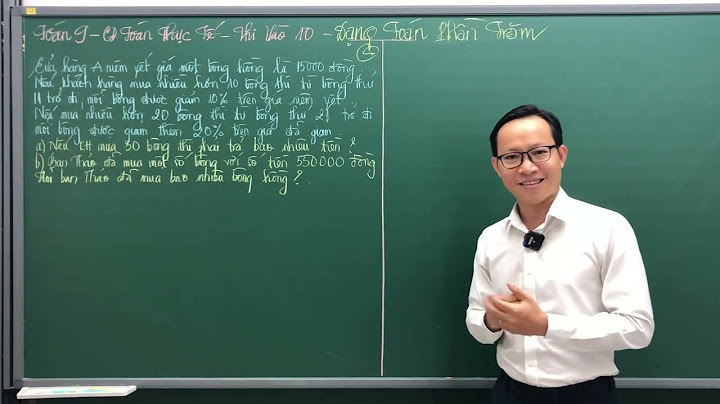 Toán 9 - CĐ Toán Thực Tế - Thi Vào 10 - Dạng Toán Phần Trăm
Cửa hàng A niêm yết giá một bông hồng là 15000 đồng.
Nếu khách hàng mua nhiều hơn 10 bông thì từ bông thứ
11 trở đi, mỗi bông được giảm 10% trên giá niêm yết.
Nếu mua nhiều hơn 20 bông thì từ bông thứ 21 trở đi
mỗi bông được giảm thêm 20% trên giá đã giảm.
a) Nếu KH mua 30 bông thì phải trả bao nhiêu tiền?
b) Bạn Thảo đã mua một số bông với số tiền 550000 đồng
Hỏi bạn Thảo đã mua bao nhiêu bông hồng?